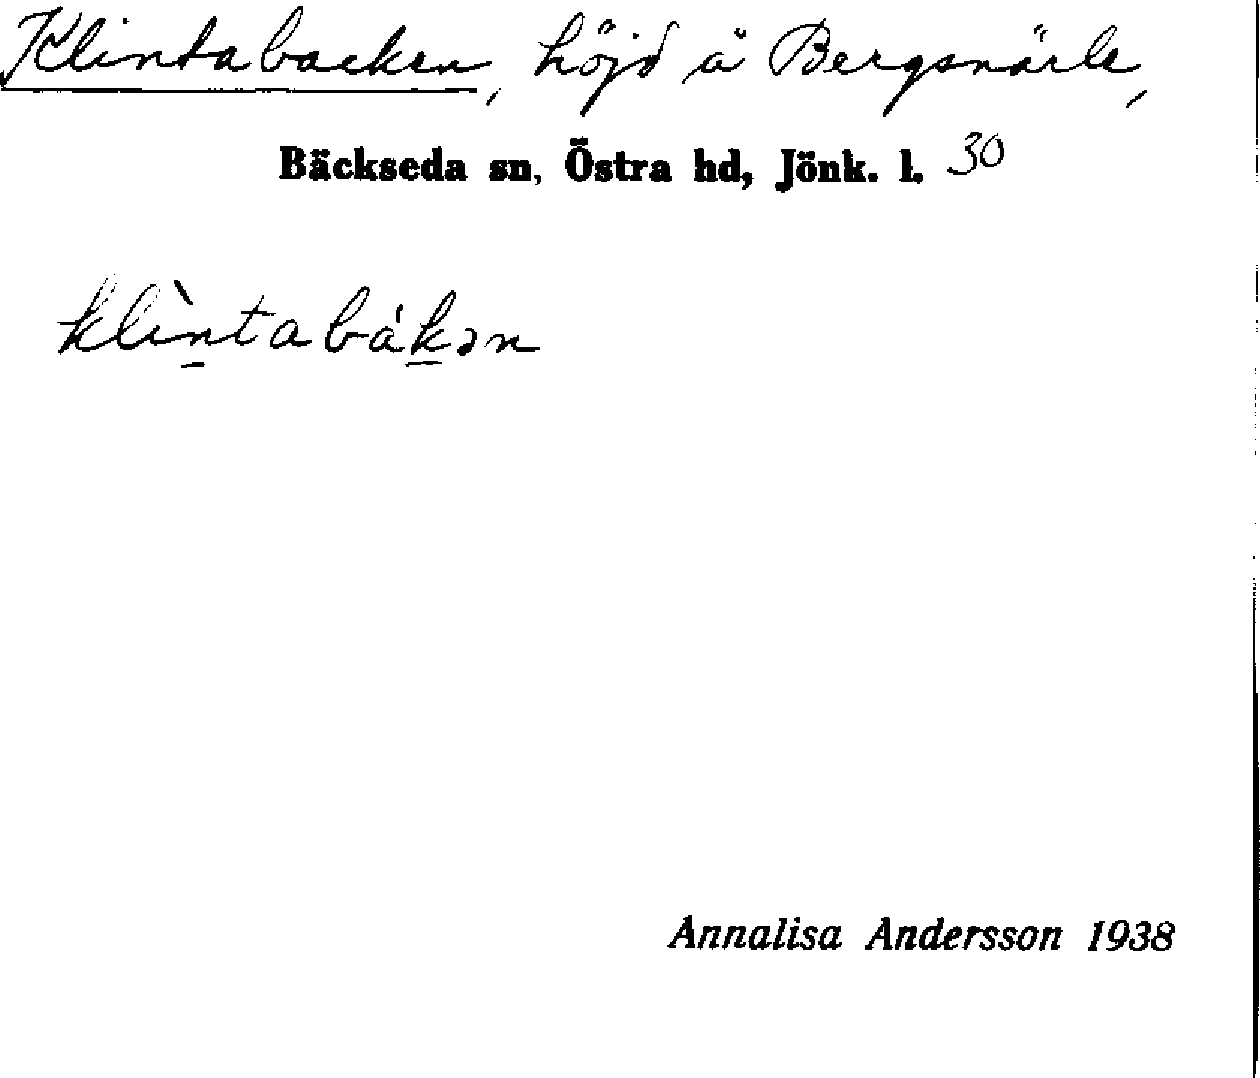 Klintabacken, höjd å Bergsnärle,
Bäckseda sn, Östra hd, Jönk. l. 30
klìn̲tabák̲ən
Annalisa Andersson 1938